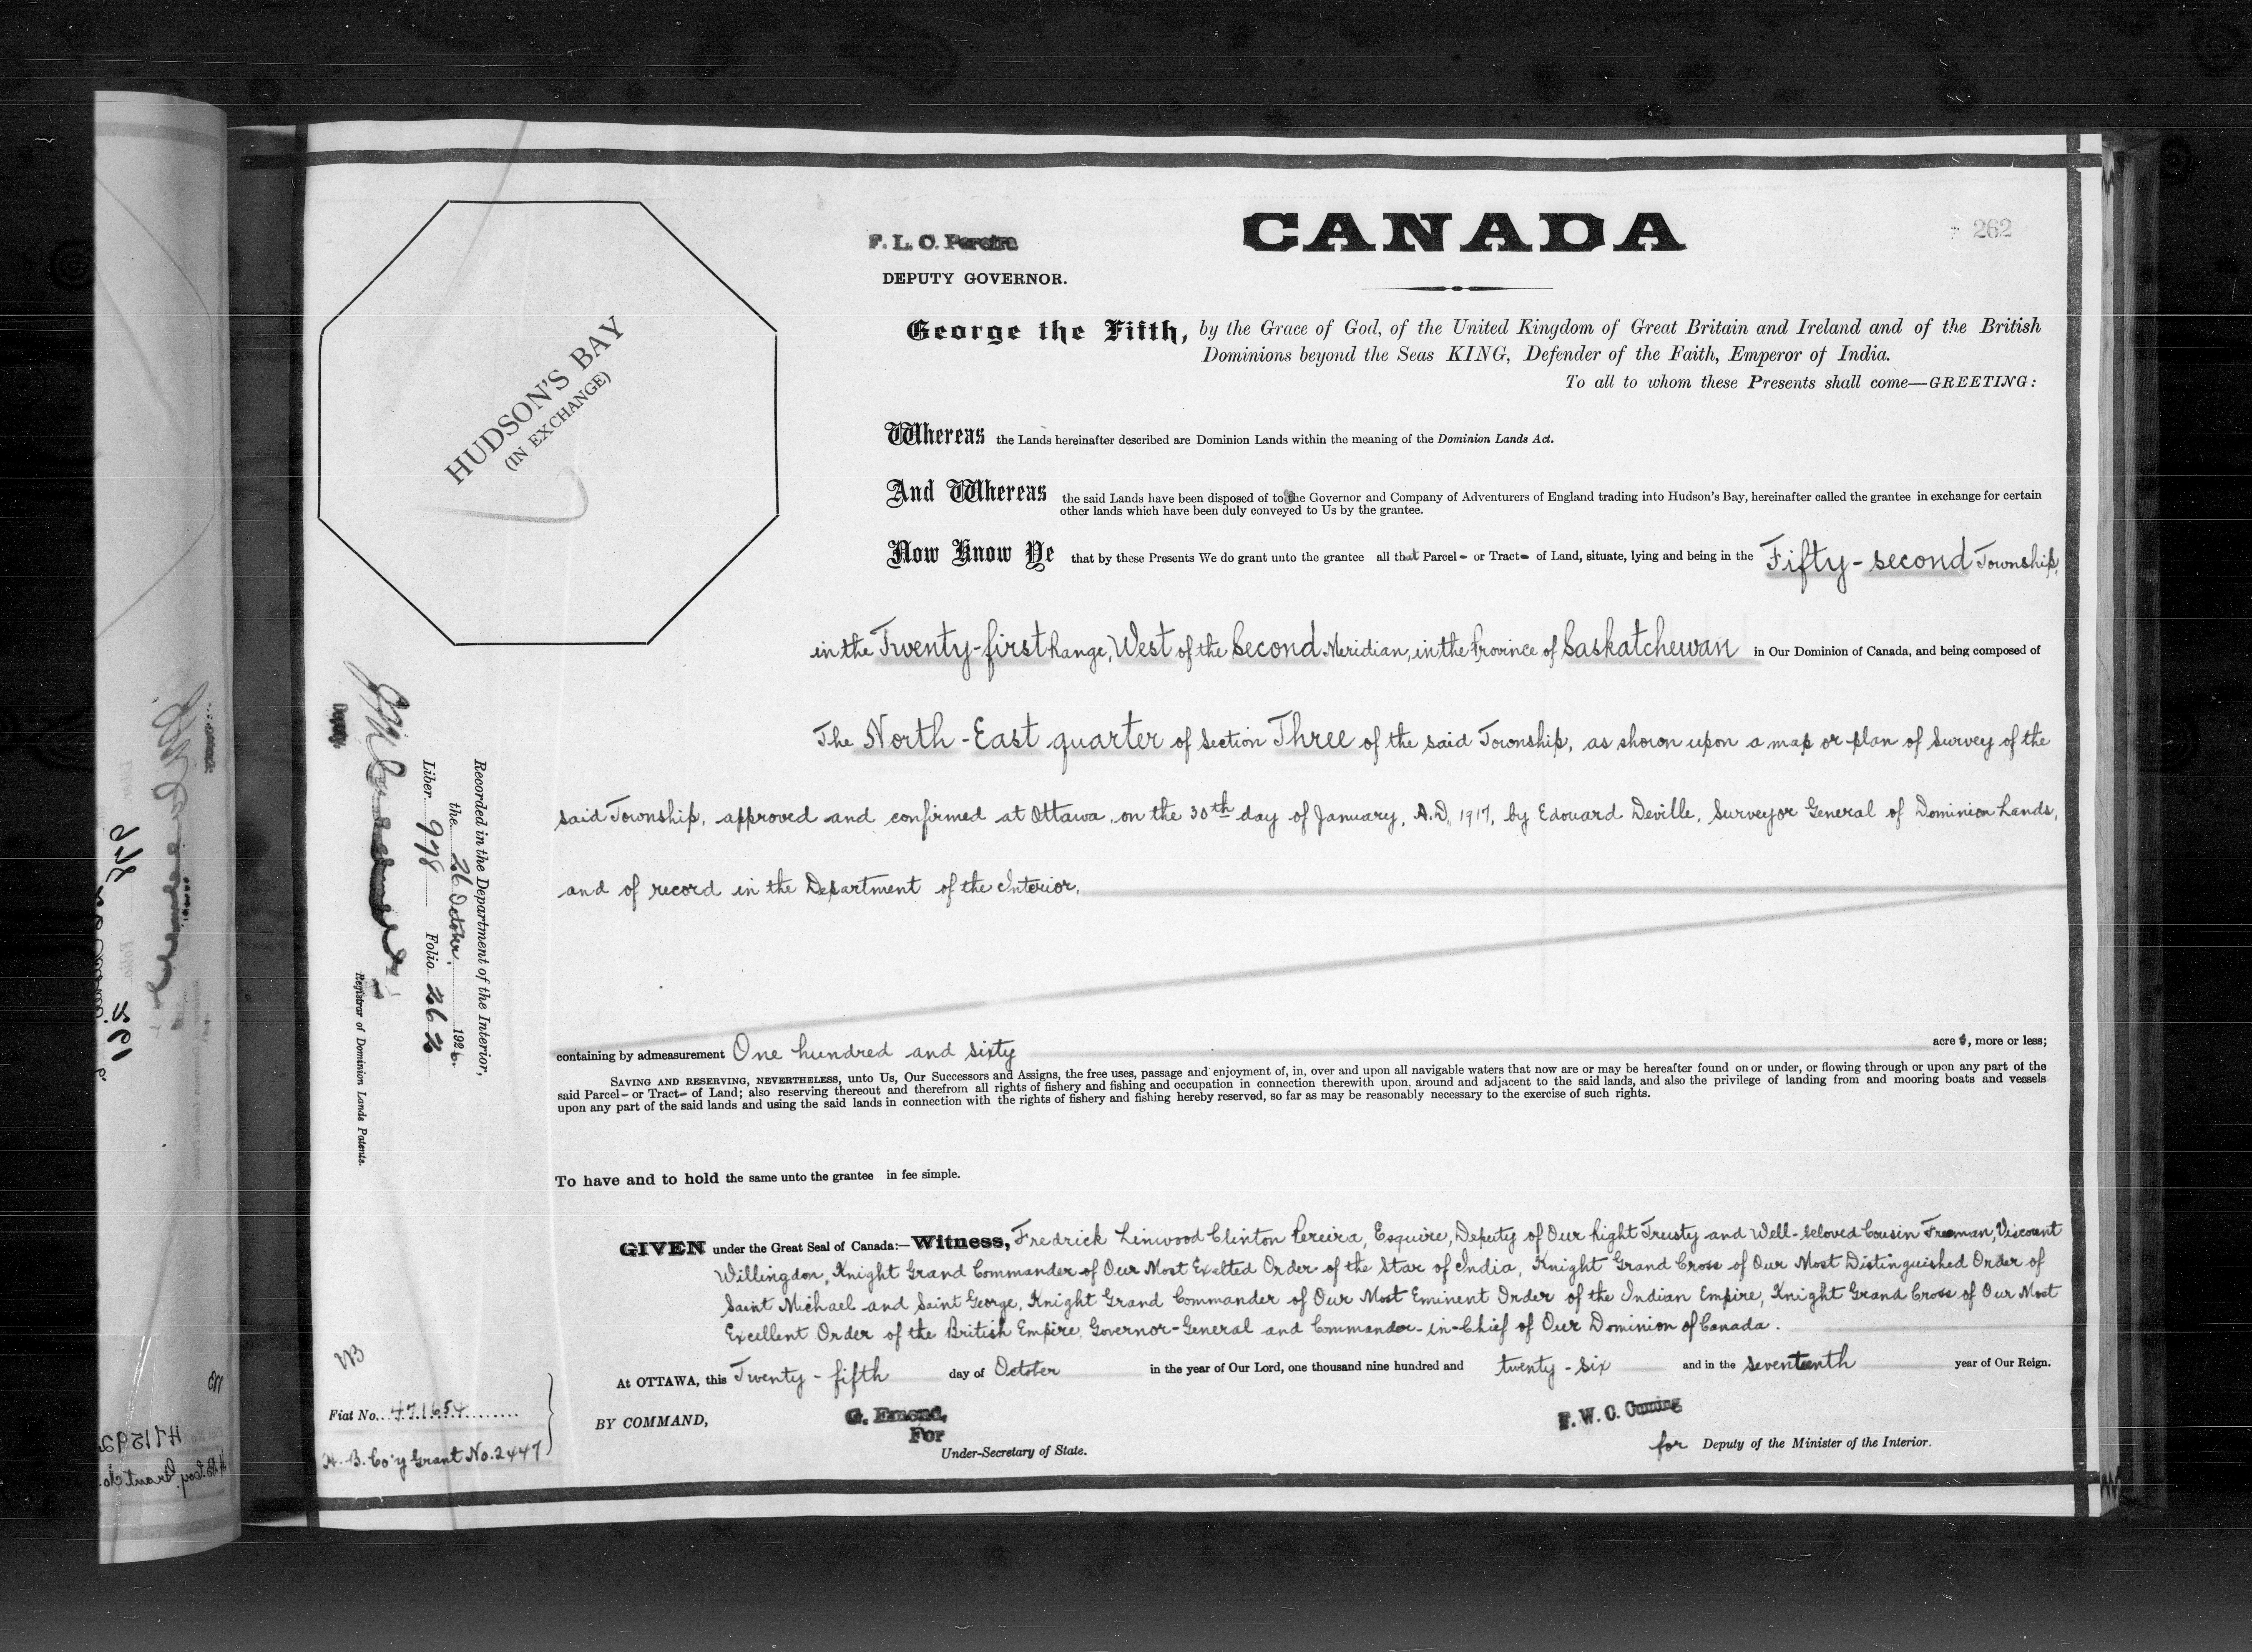 CANADA
262
F. L. C. Pereira
DEPUTY GOVERNOR.
HUDSON'S BAY
(IN EXCHANGE)
George the Fifth, by the Grace of God, of the United Kingdom of Great Britain and Ireland and of the British
Dominions beyond the Seas KING, Defender of the Faith, Emperor of India.
To all to whom these Presents shall come—GREETING:
Whereas the Lands hereinafter described are Dominion Lands within the meaning of the Dominion Lands Act.
And Whereas the said Lands have been disposed of to the Governor and Company of Adventurers of England trading into Hudson's Bay, hereinafter called the grantee in exchange for certain
other lands which have been duly conveyed to Us by the grantee.
Now Know Ye that by these Presents We do grant unto the grantee all that Parcel - or Tract - of Land, situate, lying and being in the Fifty-second Township,
in the Twenty-first Range, West of the Second Meridian, in the Province of Saskatchewan in Our Dominion of Canada, and being composed of
The North-East quarter of Section Three of the said Township, as shown upon a map or plan of Survey of the
said Township, approved and confirmed at Ottawa, on the 30th day of January, A.D. 1917, by Edouard Deville, Surveyor General of Dominion Lands,
and of record in the Department of the Interior,
containing by admeasurement One hundred and sixty acres, more or less;
SAVING AND RESERVING, NEVERTHELESS, unto Us, Our Successors and Assigns, the free uses, passage and enjoyment of, in, over and upon all navigable waters that now are or may be hereafter found on or under, or flowing through or upon any part of the
said Parcel - or Tract - of Land; also reserving thereout and therefrom all rights of fishery and fishing and occupation in connection therewith upon, around and adjacent to the said lands, and also the privilege of landing from and mooring boats and vessels
upon any part of the said lands and using the said lands in connection with the rights of fishery and fishing hereby reserved, so far as may be reasonably necessary to the exercise of such rights.
To have and to hold the same unto the grantee in fee simple.
GIVEN under the Great Seal of Canada:—Witness, Fredrick Linwood Clinton Pereira, Esquire, Deputy of Our Right Trusty and Well-beloved Cousin Freeman, Viscount
Willingdon, Knight Grand Commander of Our Most Exalted Order of the Star of India, Knight Grand Cross of Our Most Distinguished Order of
Saint Michael and Saint George, Knight Grand Commander of Our Most Eminent Order of the Indian Empire, Knight Grand Cross of Our Most
Excellent Order of the British Empire, Governor-General and Commander-in-Chief of Our Dominion of Canada.
At OTTAWA, this Twenty-fifth day of October in the year of Our Lord, one thousand nine hundred and twenty-six and in the seventeenth year of Our Reign.
BY COMMAND,
G. Emond,
For
Under-Secretary of State.
P. W. C. Cuming
for Deputy of the Minister of the Interior.
Recorded in the Department of the Interior,
the 26 October, 1926.
Liber 978 Folio 262
Deputy
Registrar of Dominion Lands Patents.
Fiat No. 471654
H. B. Co'y Grant No. 2447
471592